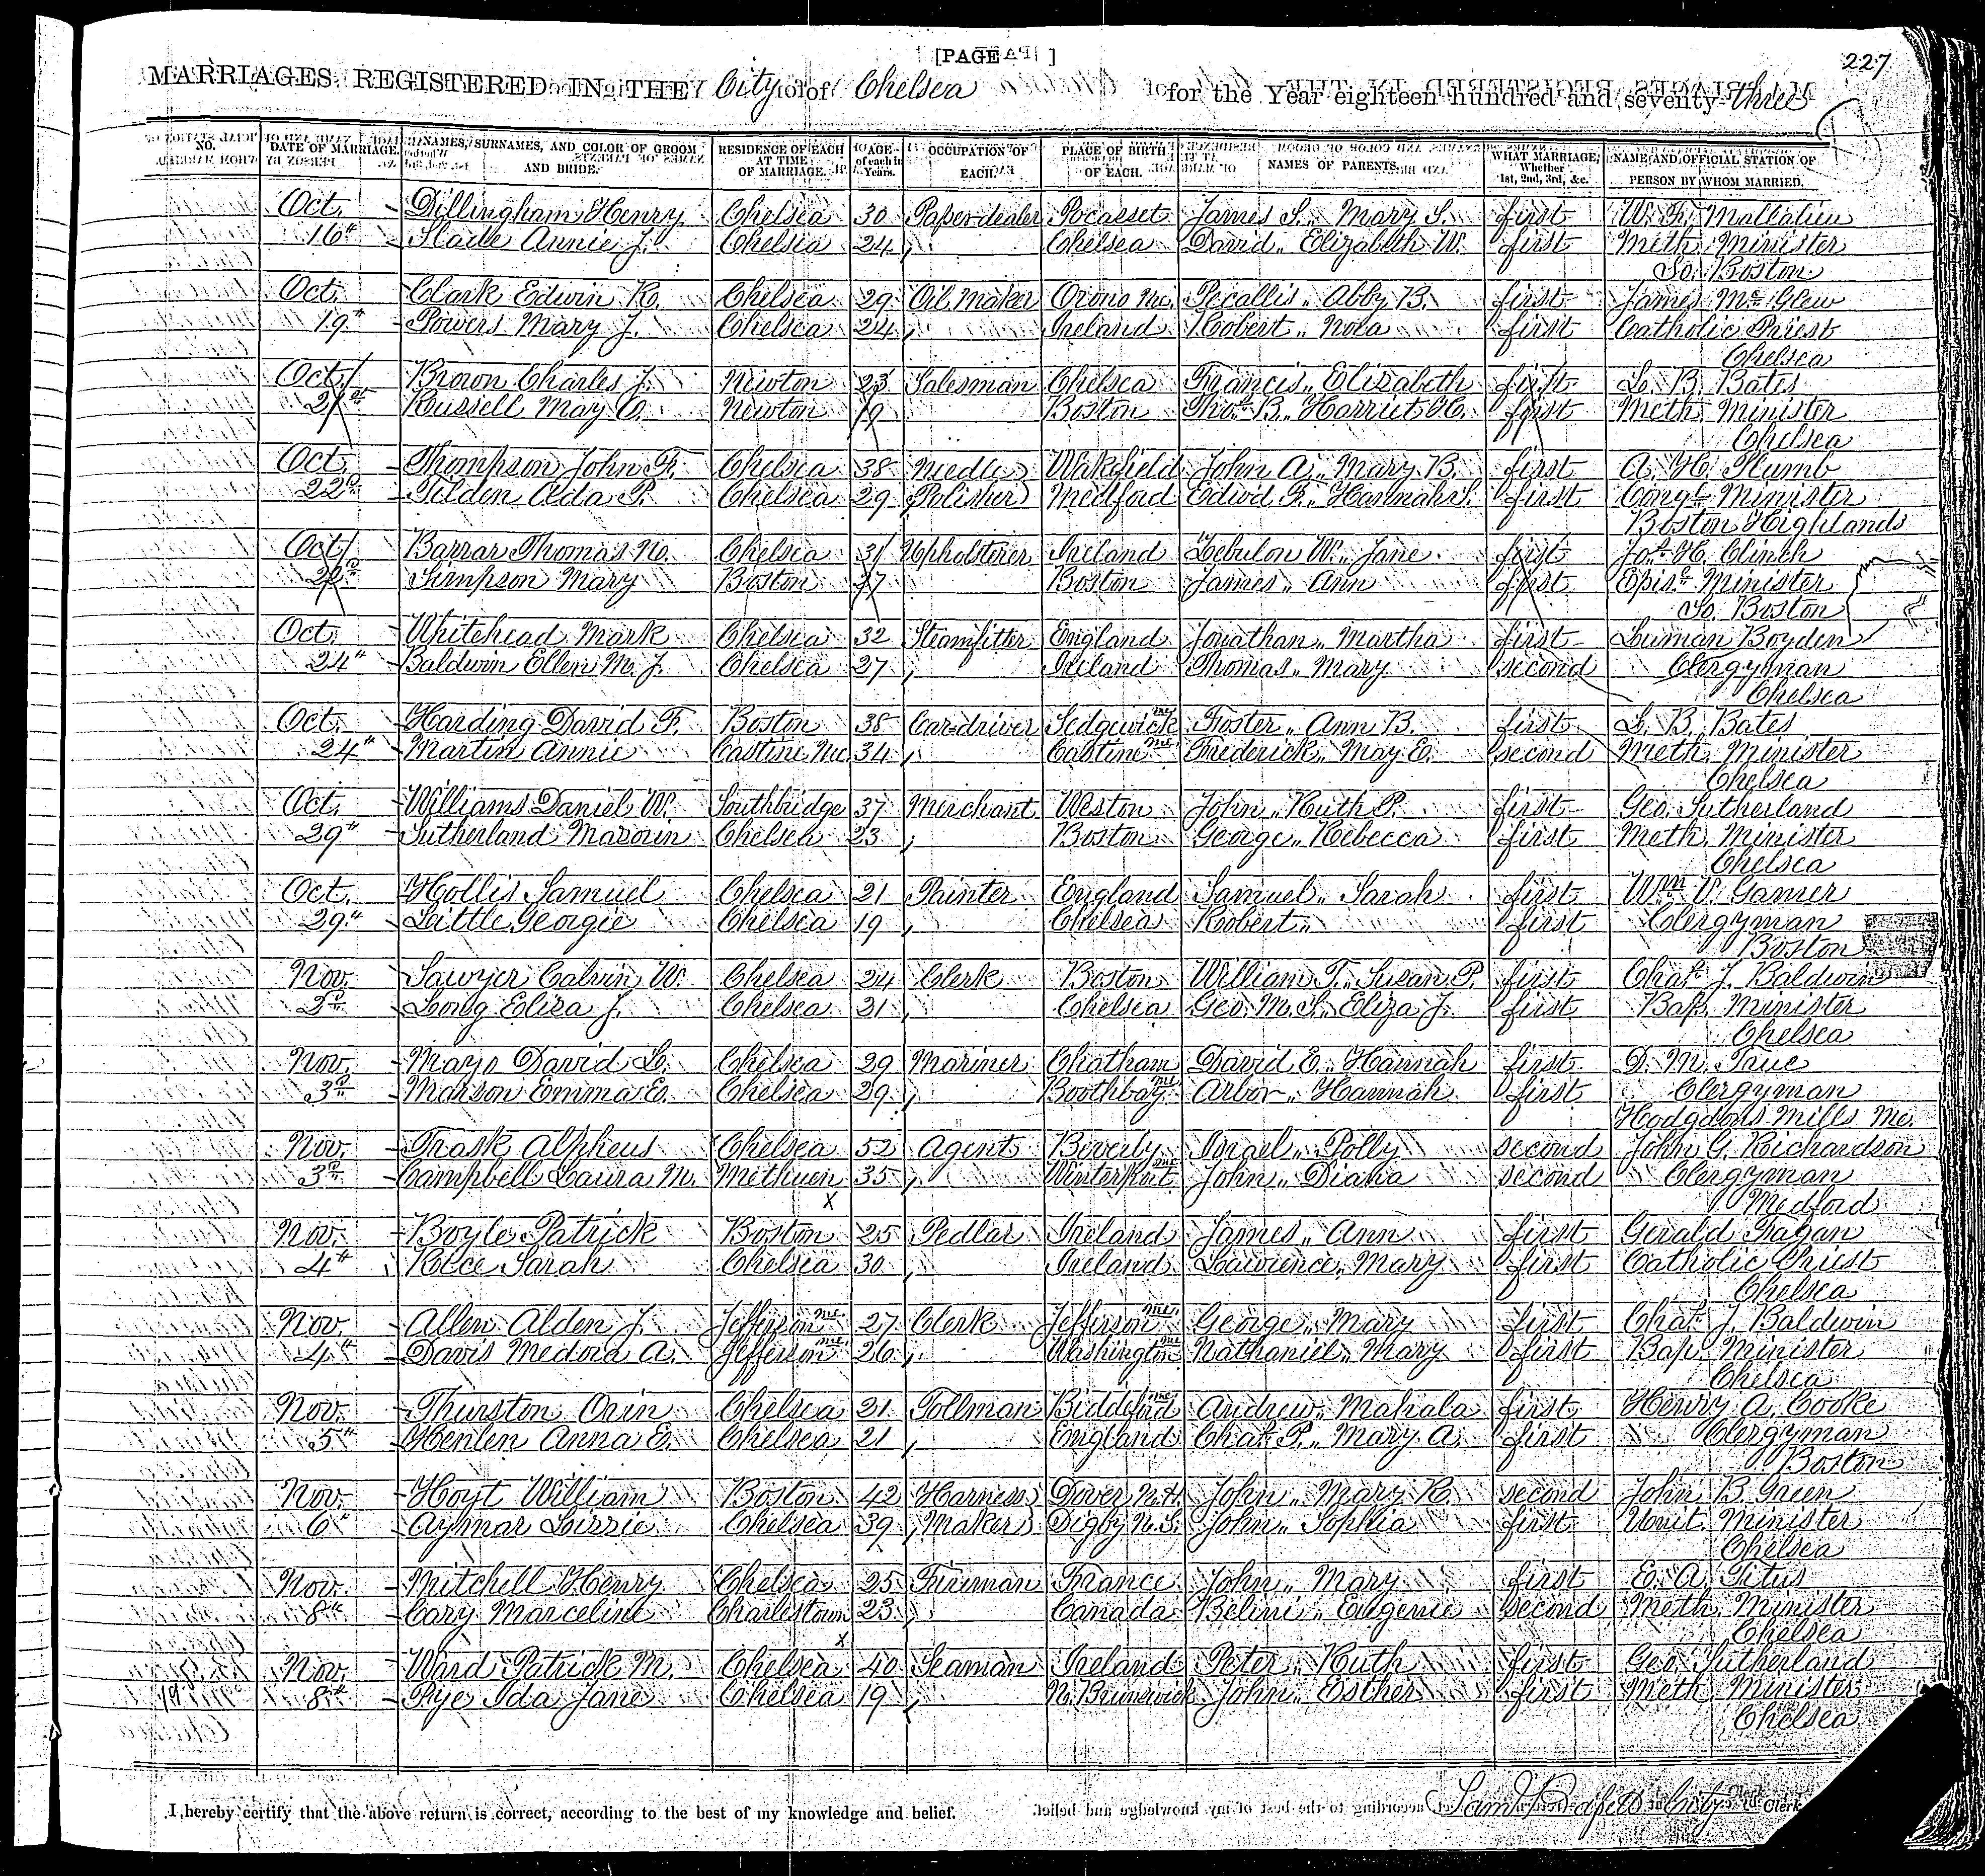 [PAGE ]
227
MARRIAGES REGISTERED IN THE City of Chelsea for the Year eighteen hundred and seventy-three
NO. DATE OF MARRIAGE. NAMES, SURNAMES, AND COLOR OF GROOM AND BRIDE. RESIDENCE OF EACH AT TIME OF MARRIAGE. AGE of each in Years. OCCUPATION OF EACH. PLACE OF BIRTH OF EACH. NAMES OF PARENTS. WHAT MARRIAGE, Whether 1st, 2nd, 3rd, &c. NAME AND OFFICIAL STATION OF PERSON BY WHOM MARRIED.
Oct. Dillingham Henry Chelsea 30 Paper dealer Pocasset James S. „ Mary S. first W. F. Mallalieu
16th Slade Annie J. Chelsea 24 Chelsea David „ Elizabeth W. first Meth. Minister
So. Boston
Oct. Clark Edwin R. Chelsea 29 Oil Maker Orono Me. Pecallis „ Abby B. first James McGlew
19th Powers Mary J. Chelsea 24 Ireland Robert „ Nora first Catholic Priest
Chelsea
Oct. Brown Charles J. Newton 23 Salesman Chelsea Francis „ Elizabeth first L. B. Bates
21st Russell May C. Newton 19 Boston Thos. B. „ Harriet H. first Meth. Minister
Chelsea
Oct. Thompson John F. Chelsea 38 Needle Wakefield John A. „ Mary B. first A. H. Plumb
22d Tilden Ada P. Chelsea 29 Polisher Medford Edwd. R. „ Hannah S. first Congl. Minister
Boston Highlands
Oct. Barrar Thomas N. Chelsea 31 Upholsterer Ireland Zebulon W. „ Jane first Jos. H. Clinch
22d Simpson Mary Boston 27 Boston James „ Ann first Episc. Minister
So. Boston
Oct. Whitehead Mark Chelsea 32 Steamfitter England Jonathan „ Martha first Luman Boyden
24th Baldwin Ellen M. J. Chelsea 27 Ireland Thomas „ Mary second Clergyman
Chelsea
Oct. Harding David F. Boston 38 Car-driver Sedgwick Me Foster „ Ann B. first L. B. Bates
24th Martin Annie Castine Me. 34 Castine Me. Frederick „ May E. second Meth. Minister
Chelsea
Oct. Williams Daniel W. Southbridge 37 Merchant Weston John „ Ruth P. first Geo. Sutherland
29th Sutherland Chelsea 23 Boston George „ Rebecca first Meth. Minister
Chelsea
Oct. Hollis Samuel Chelsea 21 Painter England Samuel „ Sarah first Wm. V.
29th Little Georgie Chelsea 19 Chelsea Robert „ first Clergyman
Boston
Nov. Sawyer Calvin W. Chelsea 24 Clerk Boston William T. „ Susan P. first Chas. J. Baldwin
2d Long Eliza J. Chelsea 21 Chelsea Geo. M. S. „ Eliza J. first Bap. Minister
Chelsea
Nov. Mayo David L. Chelsea 29 Mariner Chatham David E. „ Hannah first D. M. True
3d Marson Emma E. Chelsea 29 Boothbay Me. Arbor „ Hannah first Clergyman
Hodgdons Mills Me.
Nov. Trask Alpheus Chelsea 52 Agent Beverly Israel „ Polly second John G. Richardson
3d Campbell Laura M. Methuen 35 Winterport Me John „ Diana second Clergyman
X Medford
Nov. Boyle Patrick Boston 25 Pedlar Ireland James „ Ann first Gerald Fagan
4th Rice Sarah Chelsea 30 Ireland Lawrence „ Mary first Catholic Priest
Chelsea
Nov. Allen Alden J. Jefferson Me. 27 Clerk Jefferson Me. George „ Mary first Chas. J. Baldwin
4th Davis Medora A. Jefferson Me 26 Washington Me Nathaniel „ Mary first Bap. Minister
Chelsea
Nov. Thurston Orin Chelsea 21 Tollman Biddeford Me Andrew „ Mahala first Henry A. Cooke
5th Henlen Anna E. Chelsea 21 England Chas. P. „ Mary A. first Clergyman
Boston
Nov. Hoyt William Boston 42 Harness Dover N.H. John „ Mary R. second John B. Green
6th Aymar Lizzie Chelsea 39 Maker Digby N.S. John „ Sophia first Unit. Minister
Chelsea
Nov. Mitchell Henry Chelsea 25 Fireman France John „ Mary first E. A. Titus
8th Cary Marceline Charlestown 23 Canada Belini „ Eugenie second Meth. Minister
X Chelsea
Nov. Ward Patrick M. Chelsea 40 Seaman Ireland Peter „ Ruth first Geo. Sutherland
8th Pye Ida Jane Chelsea 19 N. Brunswick John „ Esther first Meth. Minister
Chelsea
I hereby certify that the above return is correct, according to the best of my knowledge and belief. City Clerk